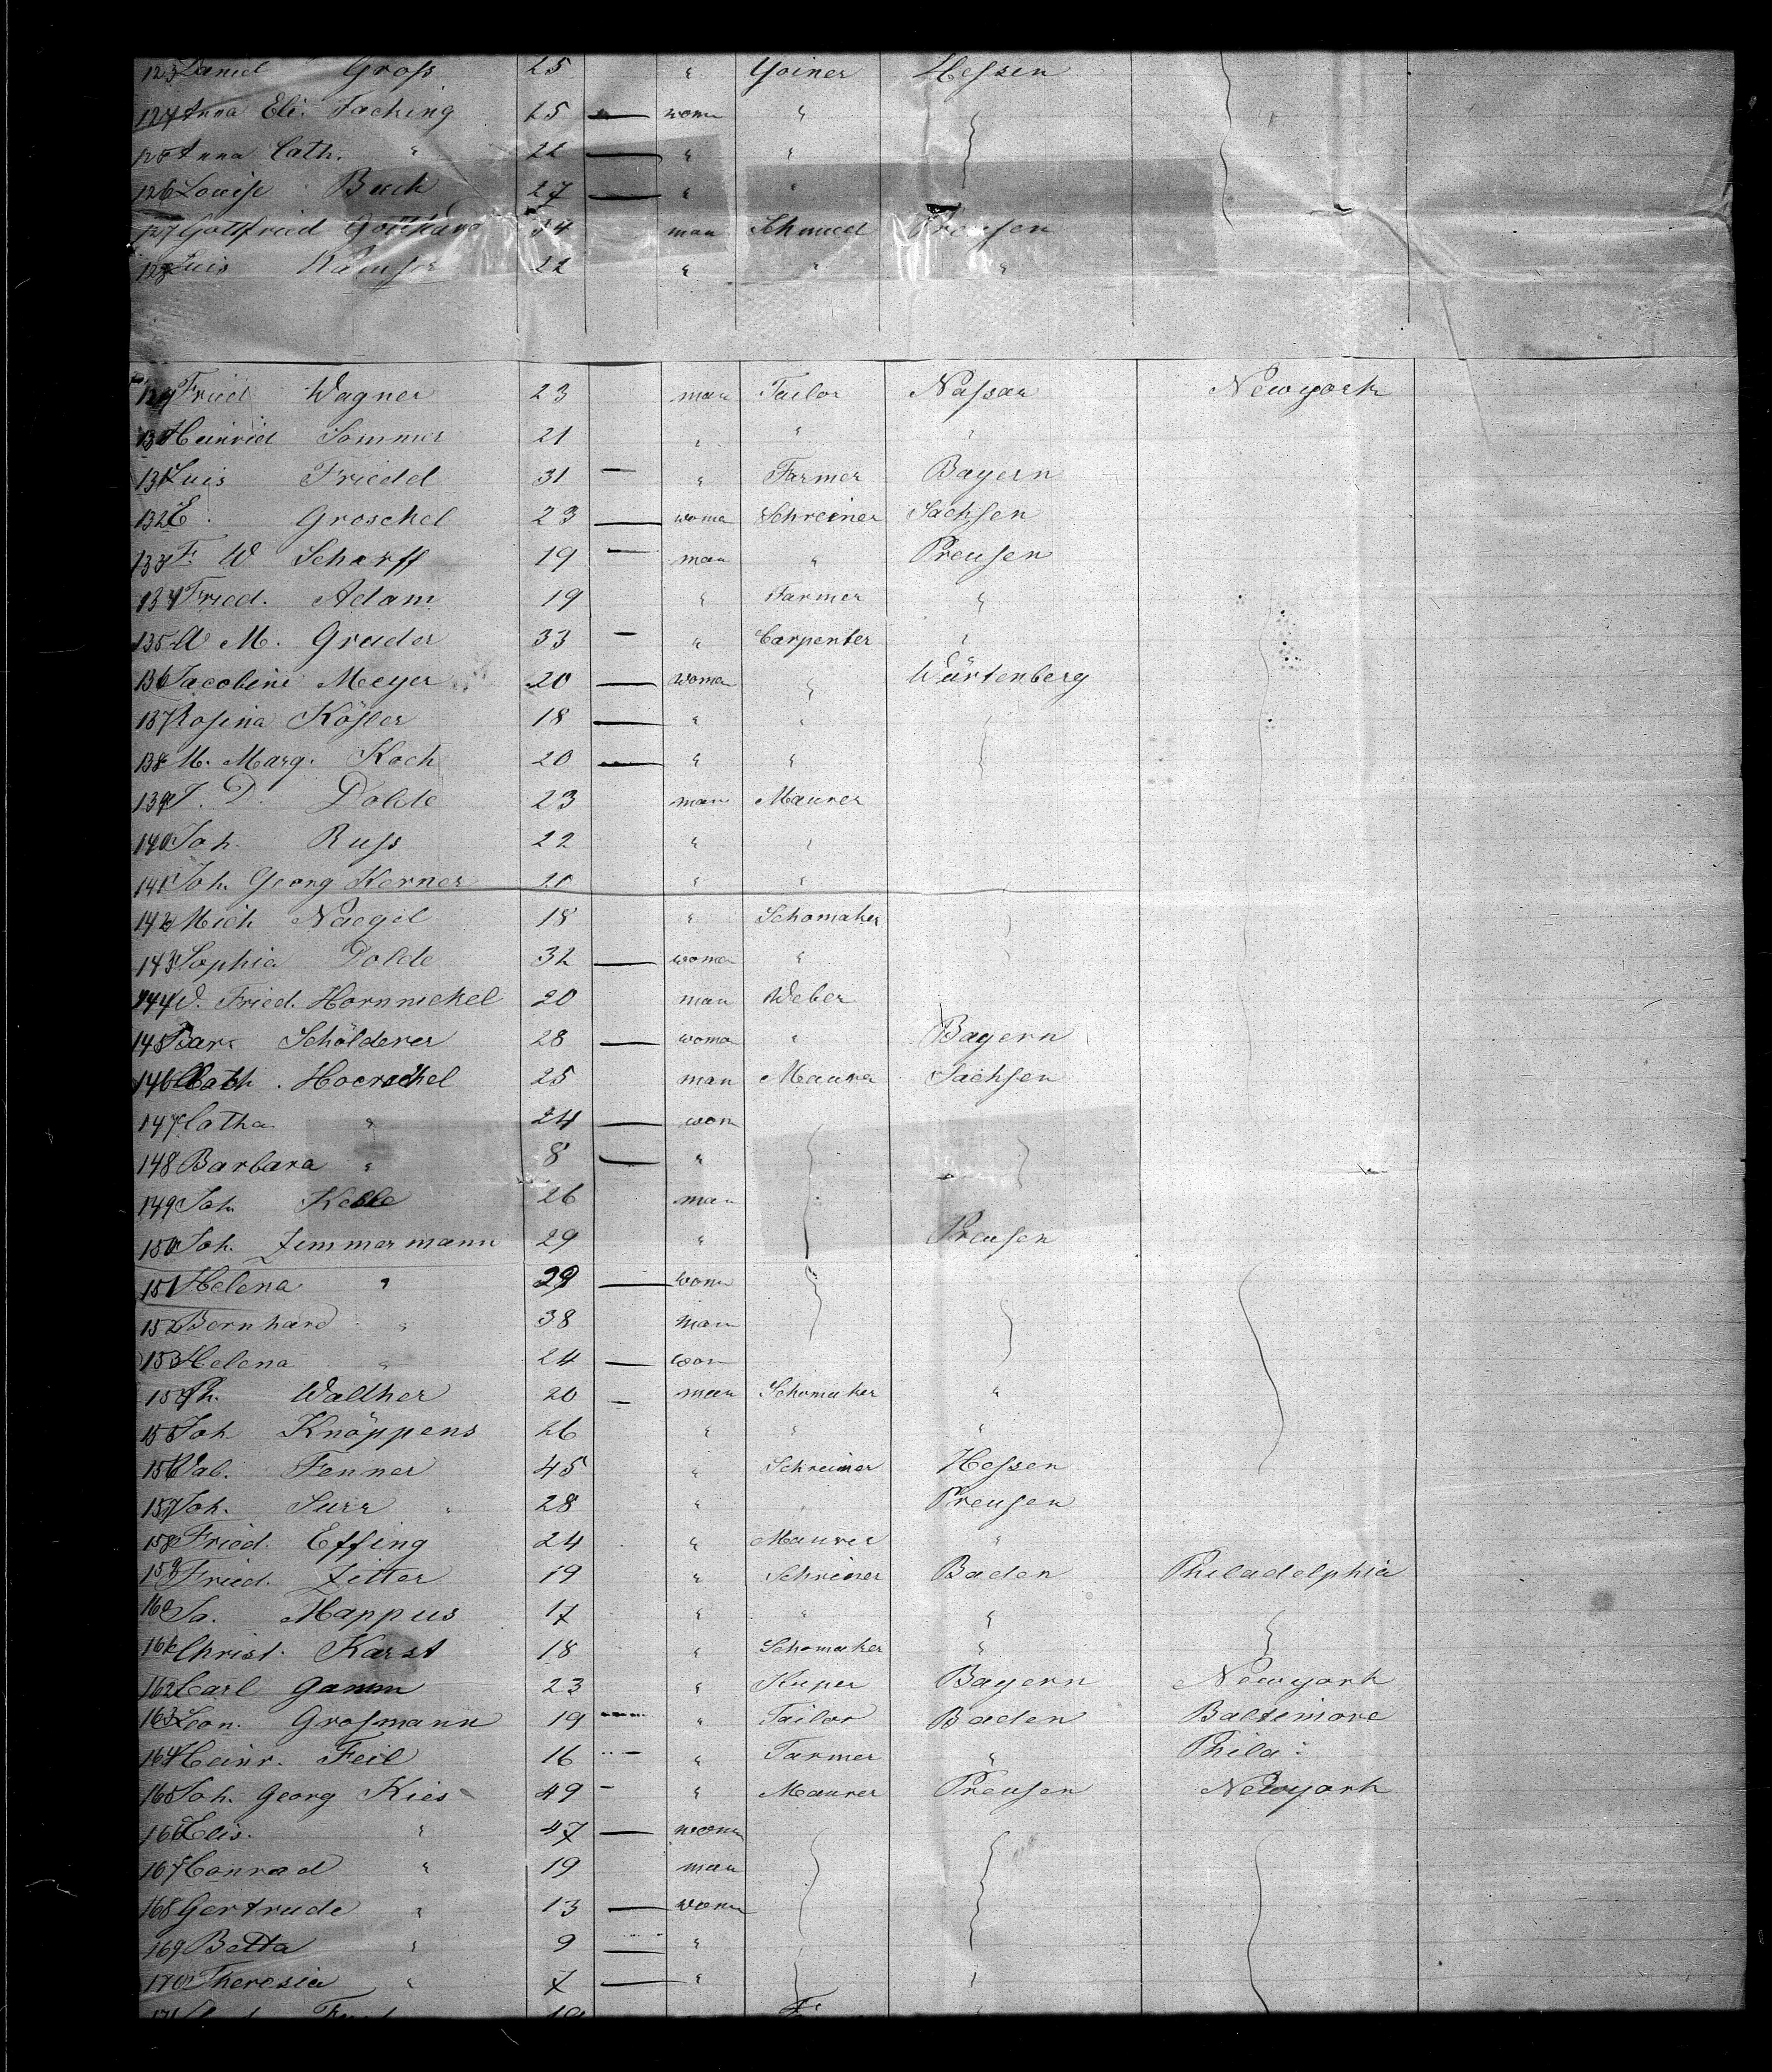 123 Daniel Groſs 25 " Yoiner Heſsen
124 Anna Eli. Faching 25 — wom "
125 Anna Cath. " 22 — " "
126 Louiſe Buch 27 — " "
127 Gottfried Gotthard 34 man Schmied Preuſen
128 Luis 22 " " "
129 Fried Wagner 23 man Tailor Naſsau Newyork
130 Heinrich Sommer 21 " " "
131 Luis Friedel 31 — " Farmer Bayern
132 E. Groschel 23 — woma Schreiner Sachſen
133 F. W Scharff 19 — man " Preuſen
134 Fried. Adam 19 " Farmer "
135 W M. Gruder 33 — " Carpenter "
136 Jacobine Meeyer 20 — woman " Würtenberg
137 Roſina Köſler 18 — " "
138 M. Marg. Koch 20 — " "
139 J. D. Dolde 23 man Maurer
140 Joh. Ruſs 22 " "
141 Joh. Georg Kerner 20 " "
142 Mich Naegel 18 " Schomaker
143 Sophia Dolde 32 — woman "
144 W. Fried. Hornnickel 20 man Weber
145 Bar. Schölderer 28 — woma " Bayern
146 Math. Hoerschel 25 man Maurer Sachſen
147 Catha " 24 — wom
148 Barbara " 8 — "
149 Joh. Kelle 26 man
150 Joh. Zimmermann 29 " Preuſen
151 Helena " 29 — wom
152 Bernhard " 38 man
153 Helena " 24 — wom
154 Ph. Walther 20 — man Schomaker "
155 Joh Knöppens 26 " " "
156 Val. Fenner 45 " Schreiner Heſsen
157 Joh. Surr 28 " " Preuſen
158 Fried. Effing 24 " Maurer "
159 Fried. Zitter 19 " Schreiner Baden Philadelphia
160 Ja. Mappus 17 " " "
161 Christ. Karst 18 " Schomaker "
162 Carl Gamm 23 " Kuper Bayern Newyork
163 Leon. Groſmann 19 — " Tailor Baden Baltimore
164 Heinr. Feil 16 — " Farmer " Phila:
165 Joh. Georg Kies 49 — " Maurer Preuſen Newyork
166 Elis. " 47 — wom
167 Conrad " 19 man
168 Gertrude " 13 — wom
169 Betta " 9 — "
170 Theresia " 7 — " "
171 19